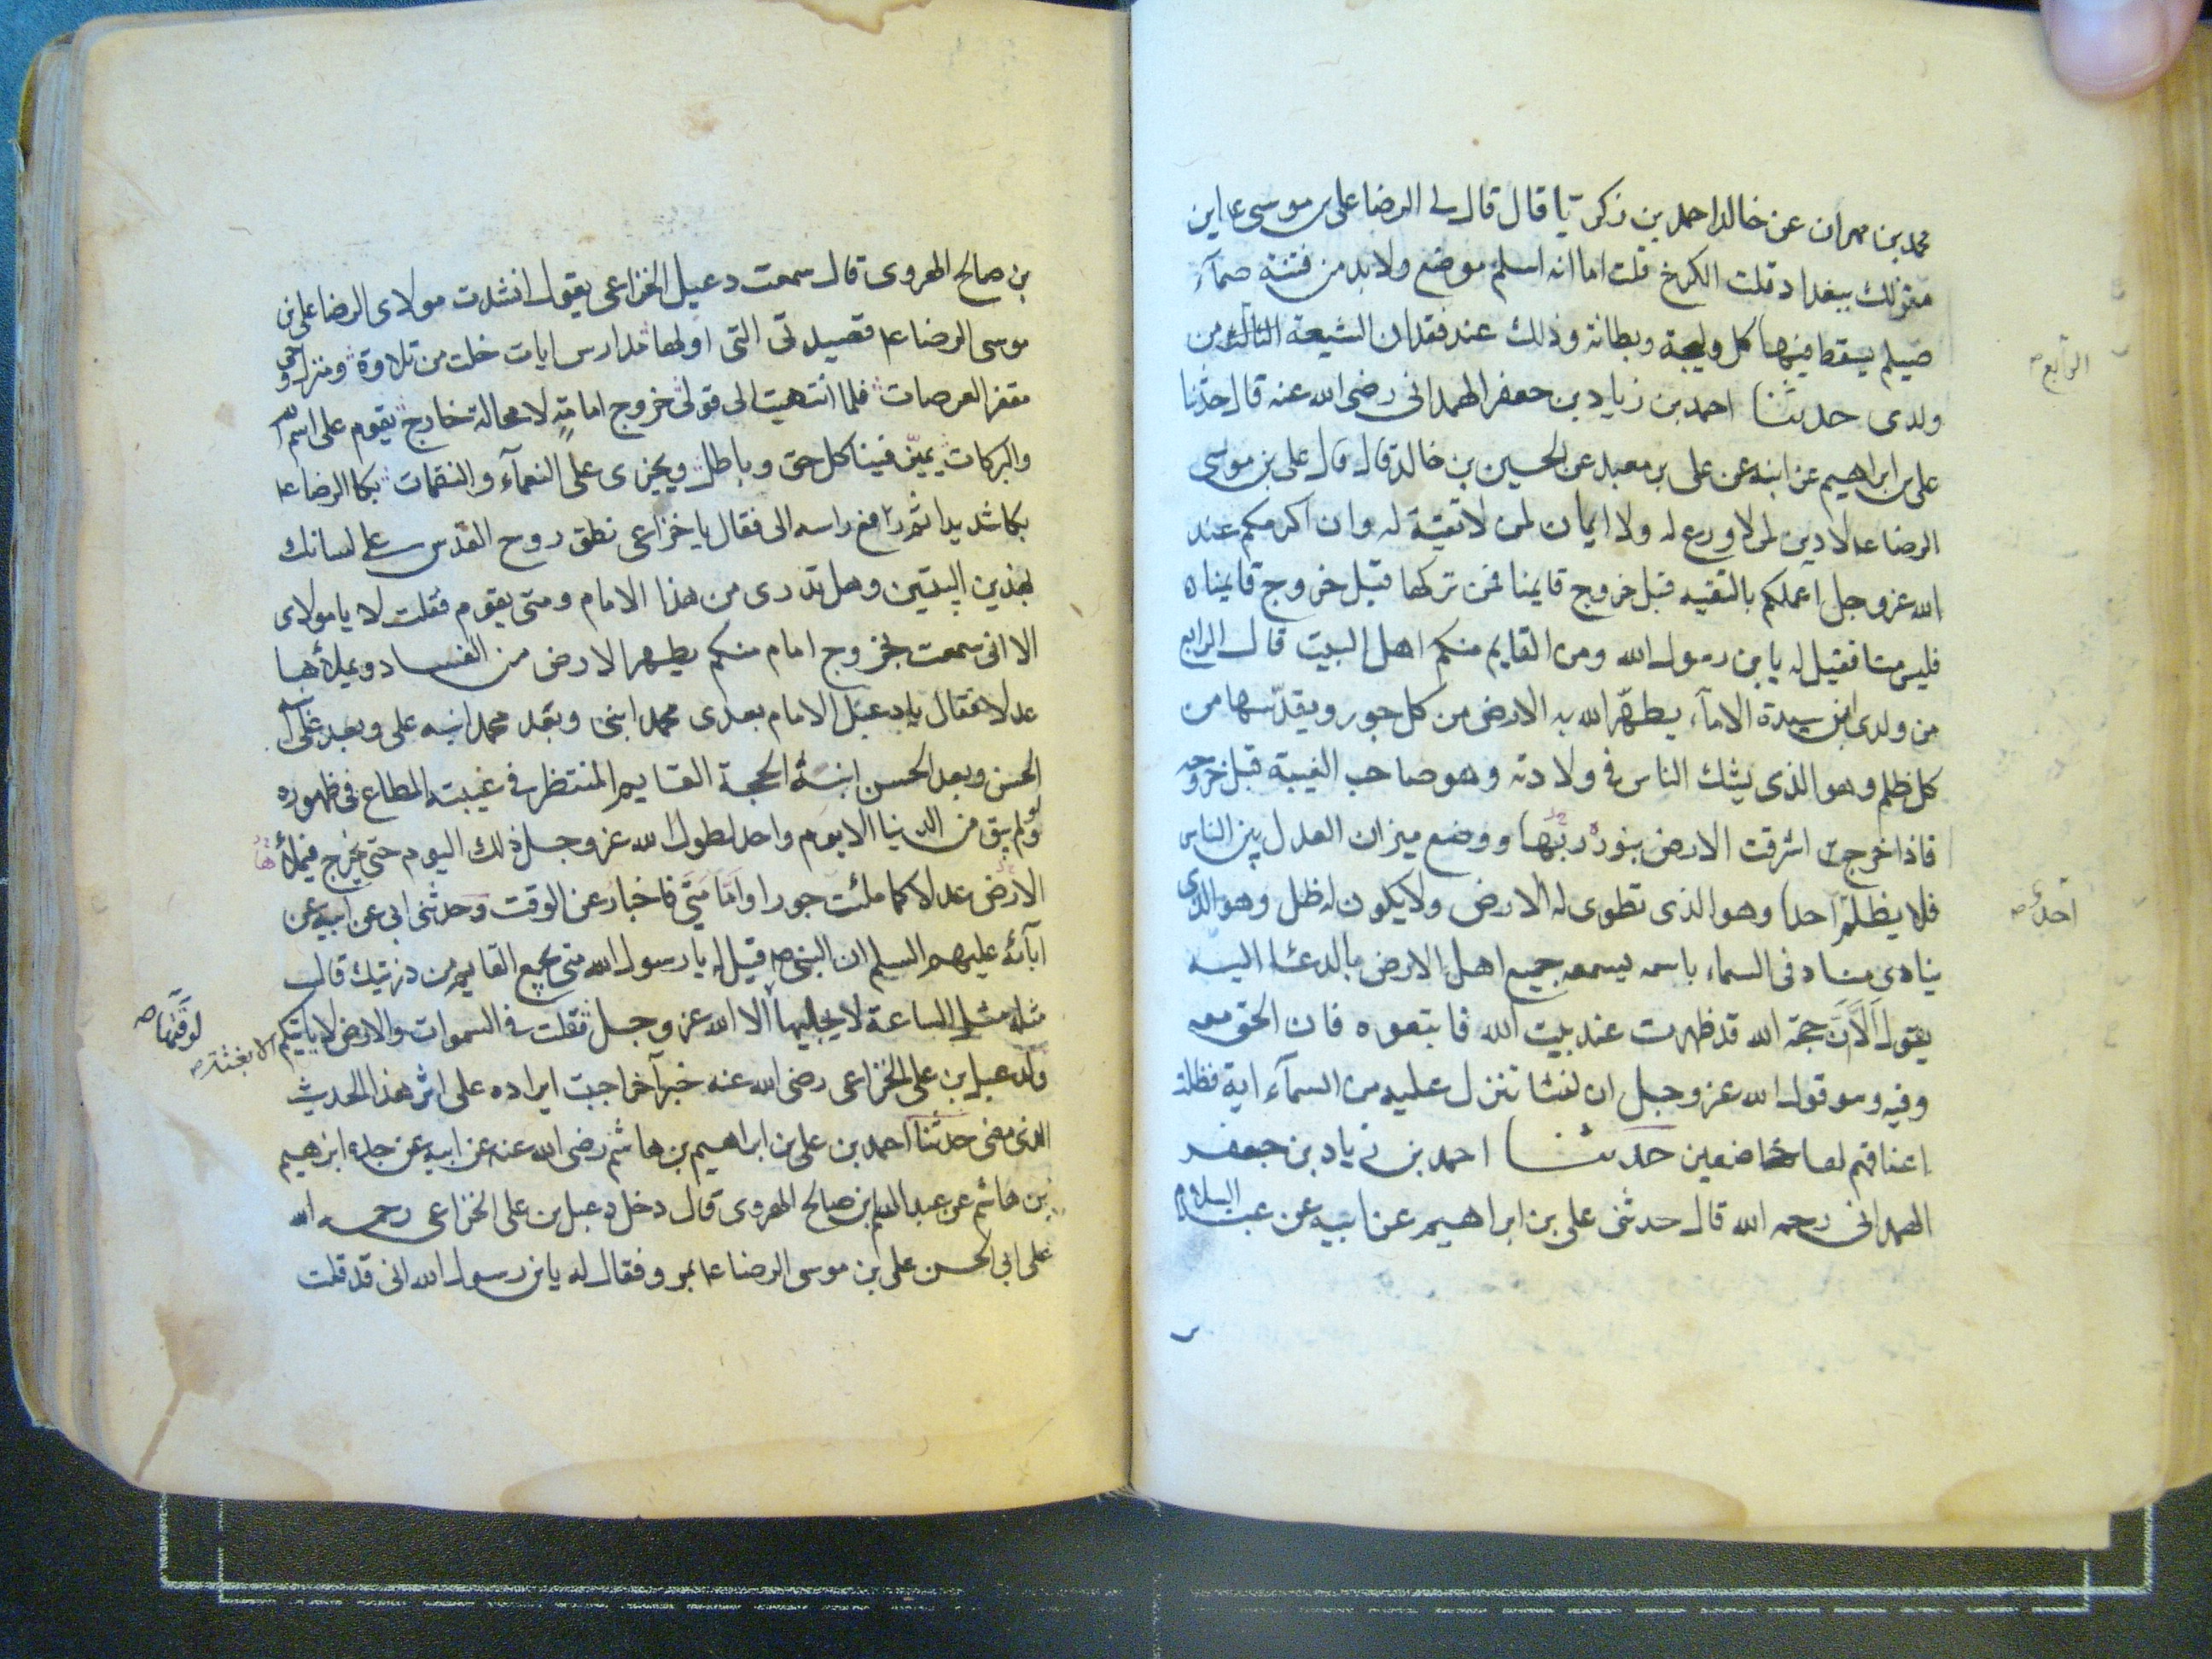 محمد بن مهران عن خالد احمد بن زكريا قال قال لى الرضا على بن موسى ع اين
منزلك ببغداد قلت الكرخ قلت اما انه اسلم موضع ولا بد من فتنة صمآء
صيلم يسقط فيها كل وليجة وبطانة وذلك عند فقدان الشيعة الثالث من
ولدى حدثنا احمد بن زياد بن جعفر الهمدانى رضى الله عنه قال حدثنا
على بن ابراهيم عن ابيه عن على بن معبد عن الحسين بن خالد قال قال على بن موسى
الرضا ع لا دين لمن لا ورع له ولا ايمان لمن لا تقية له وان اكرمكم عند
الله عز وجل اعملكم بالتقيه قبل خروج قايمنا فمن تركها قبل خروج قايمنا
فليس منا فقيل له يابن رسول الله ومن القايم منكم اهل البيت قال الرابع
من ولدى ابن سيدة الامآء يطهّر الله به الارض من كل جور ويقدّسها من
كل ظلم وهو الذى يشك الناس فى ولادته وهو صاحب الغيبة قبل خروجه
فاذا خرج اشرقت الارض بنور ربّها ووضع ميزان العدل بين الناس
فلا يظلم احدا وهو الذى تطوى له الارض ولا يكون له ظل وهو الذى
ينادى مناد فى السماء باسمه يسمعه جميع اهل الارض بالدعا اليه
يقول اَلَا انّ حجة الله قد ظهرت عند بيت الله فاتبعوه فان الحق معه
وفيه وهو قول الله عز وجل ان نشا ننزل عليهم من السمآء اية فظلت
اعناقهم لها خاضعين حدثنا احمد بن زياد بن جعفر
الهمدانى رحمه الله قال حدثنى على بن ابراهيم عن ابيه عن عبد السلام
الرابع صح
احد صح
بن صالح الهروى قال سمعت دعبل الخزاعى يقول انشدت مولاى الرضا على بن
موسى الرضا ع قصيدتى التى اولها مدارس ايات خلت من تلاوة ومنزل وحى
مقفر العرصات فلما انتهيت الى قولى خروج امام لا محالة خارج يقوم على اسم الله
والبركات يميّز فينا كل حق وباطل ويجزى على النعمآء والنقمات بكا الرضا ع
بكا شديدا ثم رافع راسه الى فقال يا خزاعى نطق روح القدس على لسانك
بهذين البيتين وهل تدرى من هذا الامام ومتى يقوم فقلت لا يا مولاى
الا انى سمعت بخروج امام منكم يطهر الارض من الفساد ويملأها
عدلا فقال يا دعبل الامام بعدى محمد ابنى وبعد محمد ابنه على وبعد على ابنه
الحسن وبعد الحسن ابنه الحجة القايم المنتظر فى غيبته المطاع فى ظهوره
ولو لم يبق من الدنيا الا يوم واحد لطول الله عز وجل ذلك اليوم حتى يخرج فيملأها
الارض عدلا كما ملئت جورا وامّا متى فاخبار عن الوقت وحدثنى ابى عن ابيه عن
آبآئه عليهم السلم ان النبى ص قيل له يا رسول الله متى يخرج القايم من ذريتك قال
مثله مثل الساعة لا يجليها الا الله عز وجل ثقلت فى السموات والارض لا ياتيكم
الا بغتة صح
لوقتها صح
ولدعبل بن على الخزاعى رضى الله عنه خبر آخر اجبت ايراده على اثر هذا الحديث
الذى مضى حدثنا احمد بن على بن ابراهيم بن هاشم رضى الله عنه عن ابيه عن جده ابرهيم
بن هاشم عن عبد السلم بن صالح الهروى قال دخل دعبل بن على الخزاعى رحمه الله
على ابى الحسن على بن موسى الرضا ع بمرو فقال له يابن رسول الله انى قد قلت